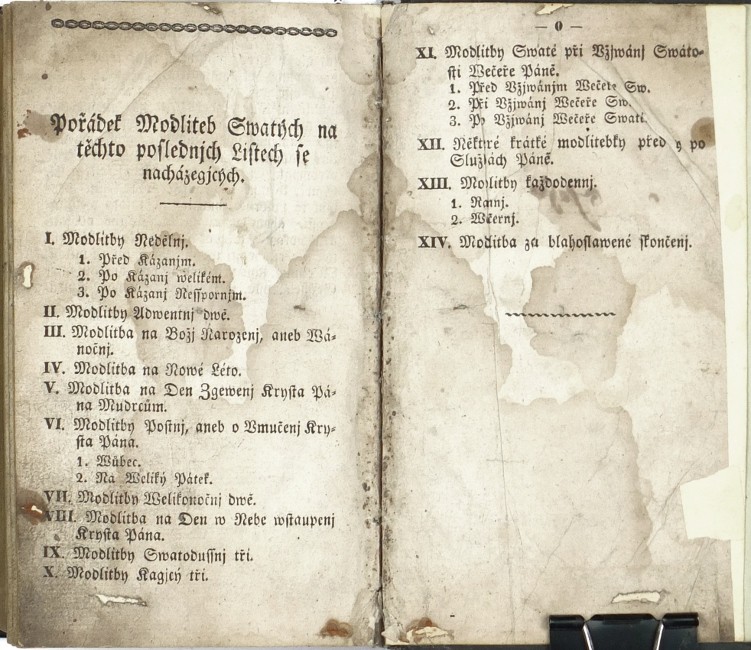 Pořádek Modliteb Swatých na
těchto poslednjch Listech se
nacházegjcých.
I. Modlitby Nedělnj.
1. Před Kázanjm.
2. Po Kázanj welikém.
3. Po Kázanj Nesspornjm.
II. Modlitby Adwentnj dwě.
III. Modlitba na Božj Narozenj, aneb Wá-
nočnj.
IV. Modlitba na Nowé Léto.
V. Modlitba na Den Zgewenj Krysta Pá-
na Mudrcům.
VI. Modlitby Postnj, aneb o Vmučenj Kry-
sta Pána.
1. Wůbec.
2. Na Weliký Pátek.
VII. Modlitby Welikonočnj dwě.
VIII. Modlitba na Den w Nebe wstaupenj
Krysta Pána.
IX. Modlitby Swatodussnj tři.
X. Modlitby Kagjcý tři.
— 0 —
XI. Modlitby Swaté při Vžjwánj Swáto-
sti Večeře Páně.
1. Před Vžjwánjm Wečeře Sw.
2. Při Vžjwánj Wečeře Sw.
3. Po Vžjwánj Wečeře Swaté.
XII. Některé krátké modlitebky před y po
Službách Páně.
XIII. Modlitby každodennj.
1. Rannj.
2. Wčernj.
XIV. Modlitba za blahoslawené skončenj.